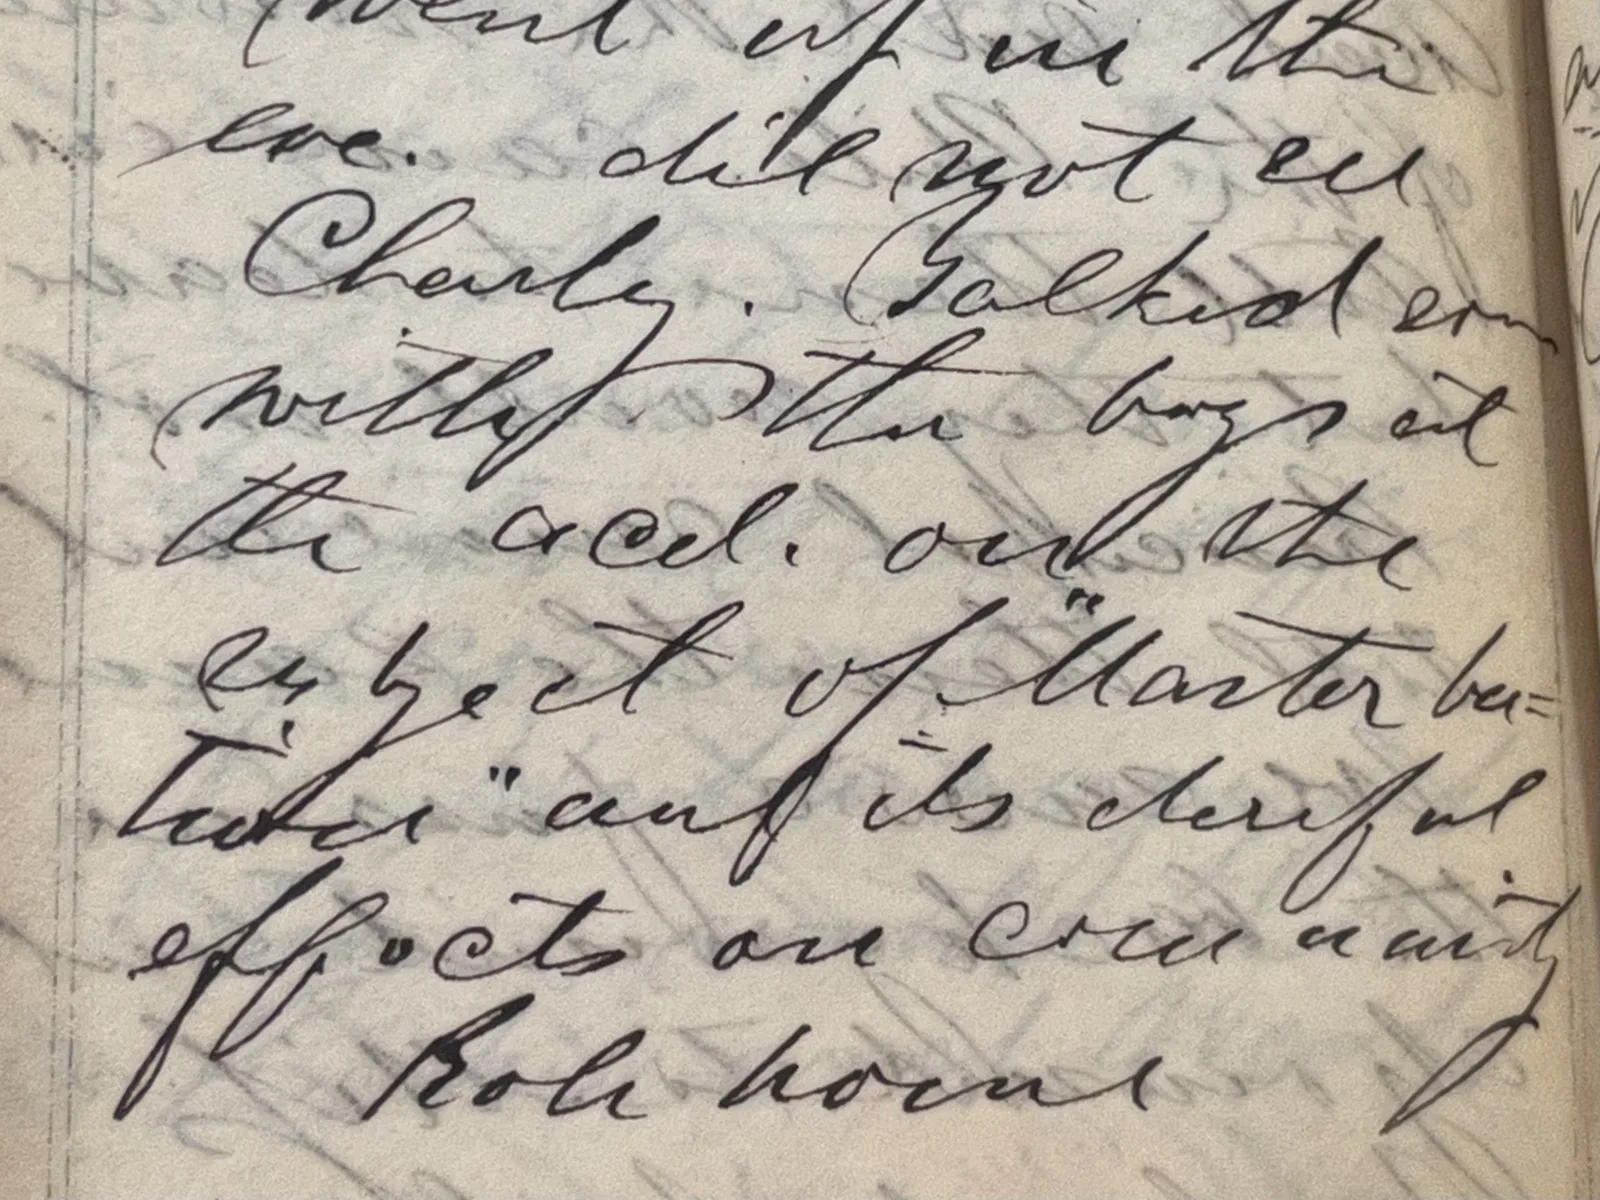 went up in the
eve. did not see
Charly. Talked som
with the boys at
the acd. on the
subject of "Master ba=
tion" and its direful
effects on community
Rode home